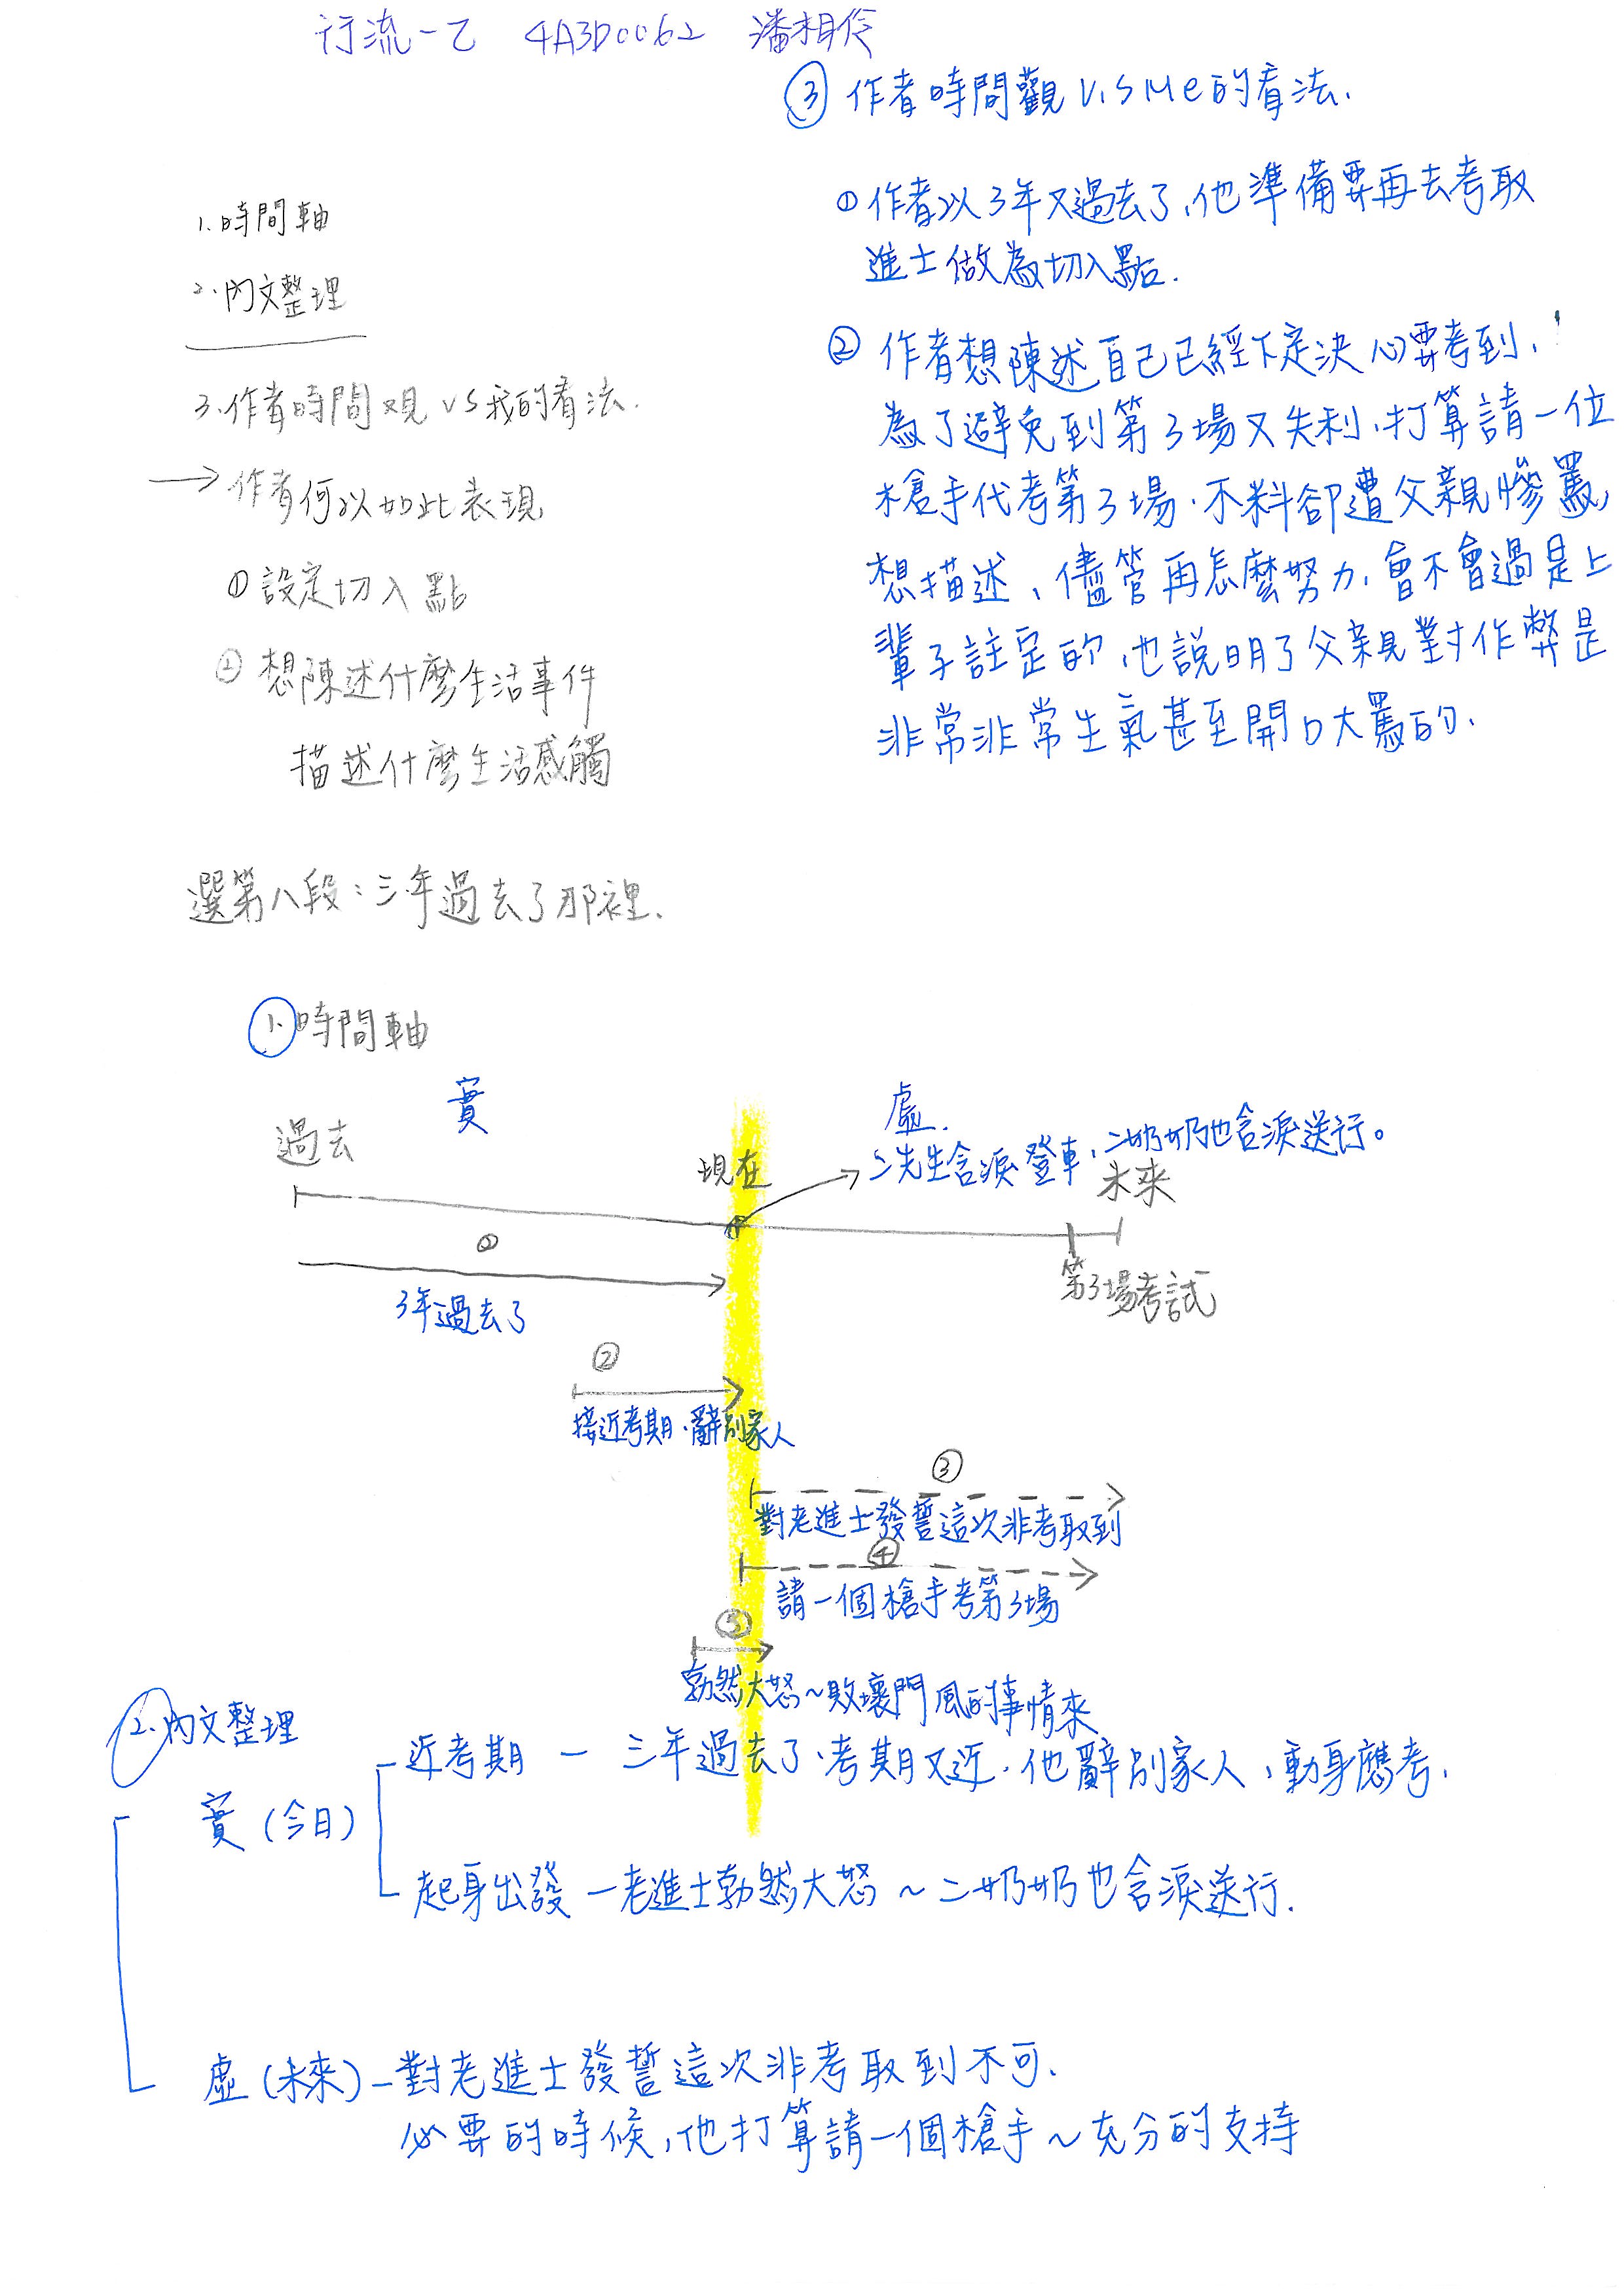 行流一乙 4A3D0062 潘相伶
1.時間軸
2.內文整理
3.作者時間观 VS 我的看法.
→作者何以如此表現
① 設定切入點
② 想陳述什麼生活事件
描述什麼生活感觸
選第八段:三年過去了那裡.
③ 作者時間觀 V.S Me的看法.
① 作者以3年又過去了,他準備要再去考取
進士做為切入點.
② 作者想陳述自己已經下定決心要考到,
為了避免到第3場又失利,打算請一位
槍手代考第3場.不料卻遭父親慘罵,
想描述、儘管再怎麼努力,會不會過是上
輩子註定的,也說明了父親對作弊是
非常非常生氣甚至開口大罵的.
1.時間軸
實
虛.
過去
現在
2先生含淚登車,二奶奶也含淚送行。
未來
第3場考試
①
3年過去了
②
接近考期.辭別家人
③
對老進士發誓這次非考取到
④
請一個槍手考第3場
⑤
勃然大怒~敗壞門風的事情來
2.內文整理
實(今日)
近考期 — 三年過去了.考期又近.他辭別家人,動身應考.
起身出發 — 老進士勃然大怒 ~ 二奶奶也含淚送行.
虛(未來) — 對老進士發誓這次非考取到不可.
必要的時候,他打算請一個槍手~充分的支持